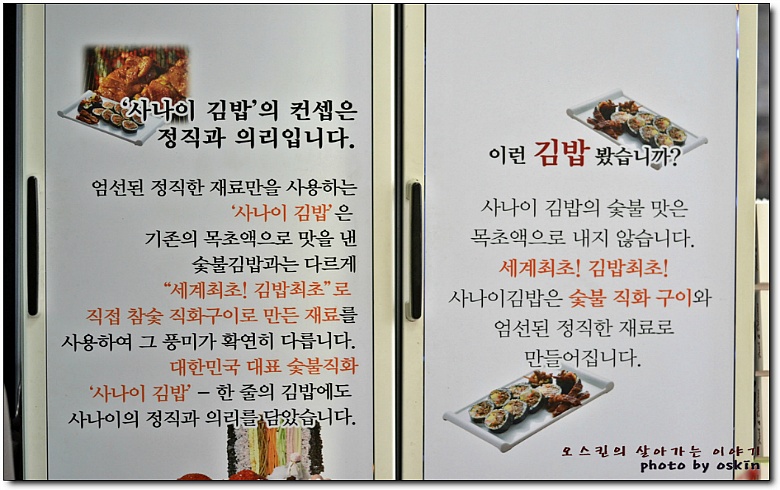 '사나이 김밥'의 컨셉은
정직과 의리입니다.
엄선된 정직한 재료만을 사용하는
'사나이 김밥'은
기존의 목초액으로 맛을 낸
숯불김밥과는 다르게
"세계최초! 김밥최초"로
직접 참숯 직화구이로 만든 재료를
사용하여 그 풍미가 확연히 다릅니다.
대한민국 대표 숯불직화
'사나이 김밥' – 한 줄의 김밥에도
사나이의 정직과 의리를 담았습니다.
이런 김밥 봤습니까?
사나이 김밥의 숯불 맛은
목초액으로 내지 않습니다.
세계최초! 김밥최초!
사나이김밥은 숯불 직화 구이와
엄선된 정직한 재료로
만들어집니다.
오스킨의 살아가는 이야기
photo by oskin